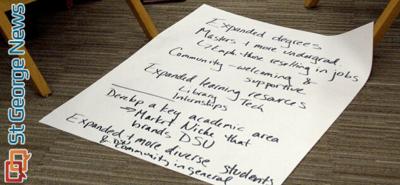 St George News
Expanded degrees
Masters + more undergrad.
Emph. those resulting in jobs
Community - welcoming &
supportive
Expanded learning resources
Library Tech
Internships
Develop a key academic area
Market Niche that
brands DSU
Expanded + more diverse students
& community in general